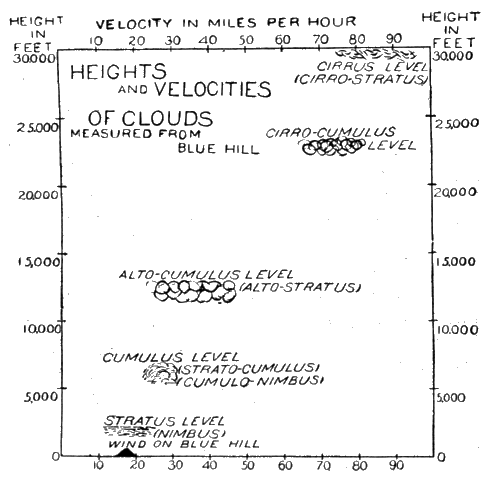 HEIGHT IN FEET
VELOCITY IN MILES PER HOUR
HEIGHT IN FEET
10 20 30 40 50 60 70 80 90
30,000
30,000
CIRRUS LEVEL
(CIRRO-STRATUS)
HEIGHTS
AND VELOCITIES
OF CLOUDS
MEASURED FROM
BLUE HILL
25,000
25,000
CIRRO-CUMULUS
LEVEL
20,000
20,000
15,000
15,000
ALTO-CUMULUS LEVEL
(ALTO-STRATUS)
10,000
10,000
CUMULUS LEVEL
(STRATO-CUMULUS)
(CUMULO-NIMBUS)
5,000
5,000
STRATUS LEVEL
(NIMBUS)
WIND ON BLUE HILL
0
0
10 20 30 40 50 60 70 80 90